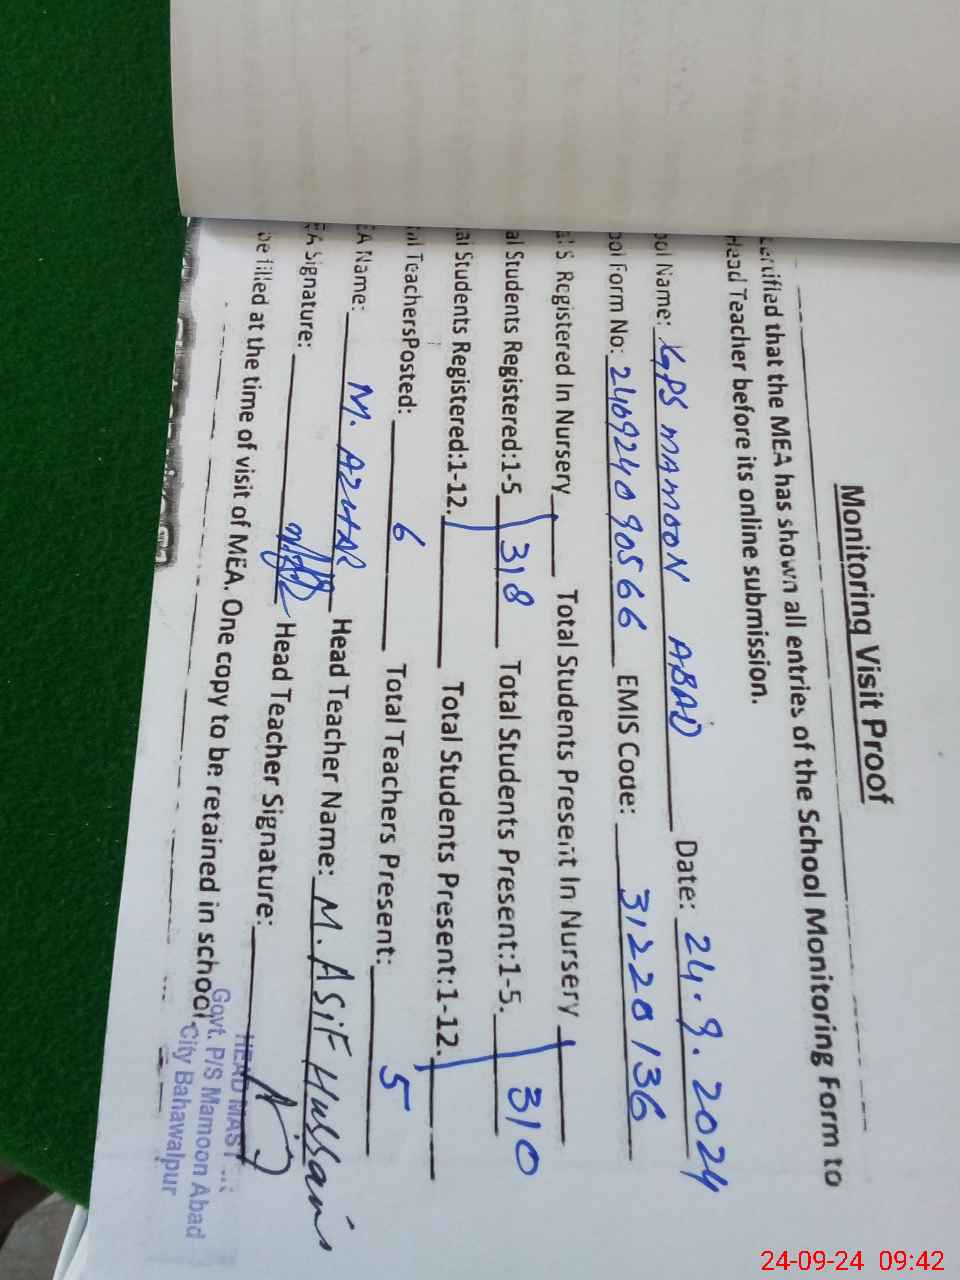 Monitoring Visit Proof
ertified that the MEA has shown all entries of the School Monitoring Form to
Head Teacher before its online submission.
ool Name: GPS MAMOON ABAD Date: 24.9.2024
ool Form No: 240924090566 EMIS Code: 31220136
al S Registered In Nursery Total Students Present In Nursery
al Students Registered:1-5 318 Total Students Present:1-5. 310
al Students Registered:1-12. Total Students Present:1-12.
al TeachersPosted: 6 Total Teachers Present: 5
EA Name: M. AZHAR Head Teacher Name: M. ASiF Hussain
EA Signature: Head Teacher Signature:
be filled at the time of visit of MEA. One copy to be retained in school.
HEAD MASTER
Govt. P/S Mamoon Abad
City Bahawalpur
24-09-24 09:42